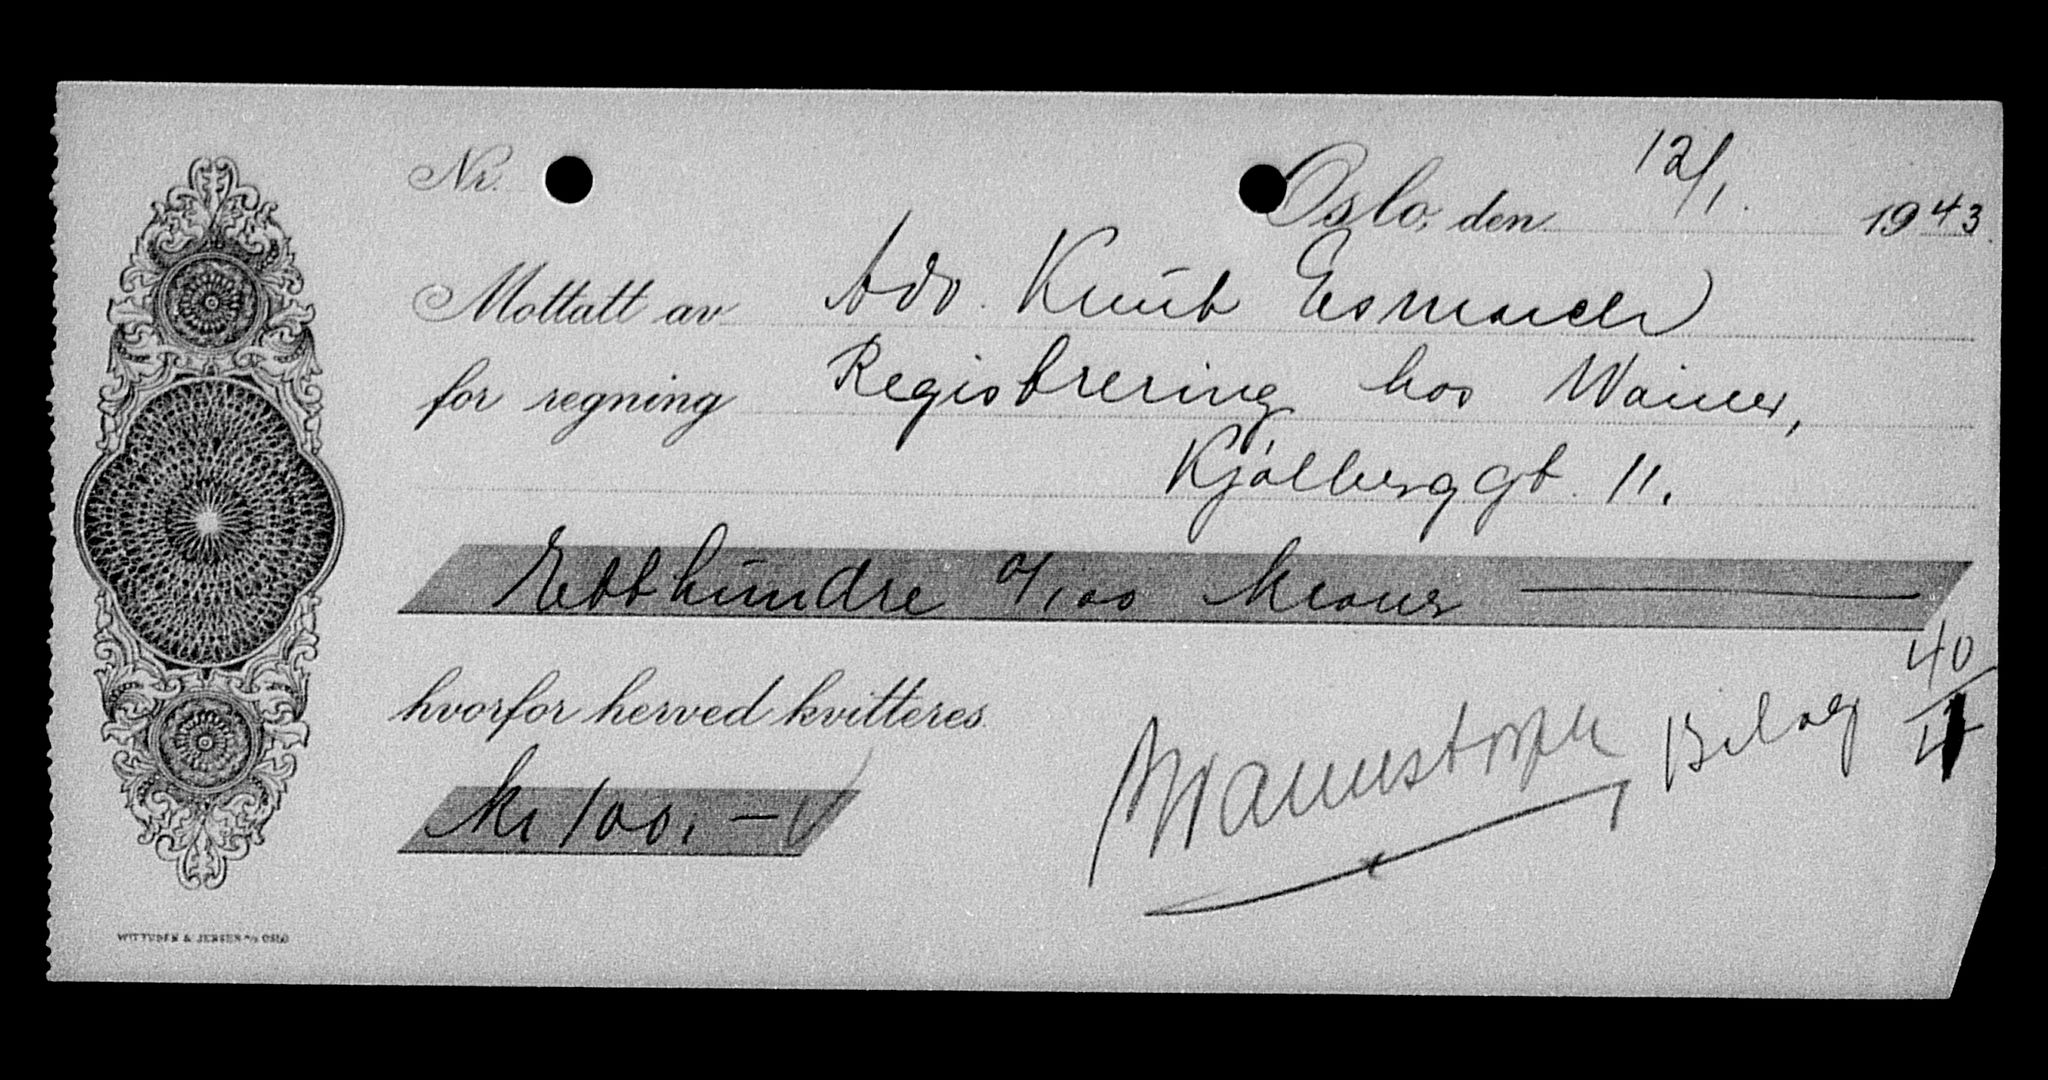 Nr.
Oslo, den 12/1. 1943.
Mottatt av Adv. Knut Esmarch
for regning Registrering hos Wainer,
Kjølberggt. 11.
Etthundre 0/100 kroner
hvorfor herved kvitteres.
Bilag 40/4
kr 100,-
WITTUSEN & JENSEN A/S OSLO